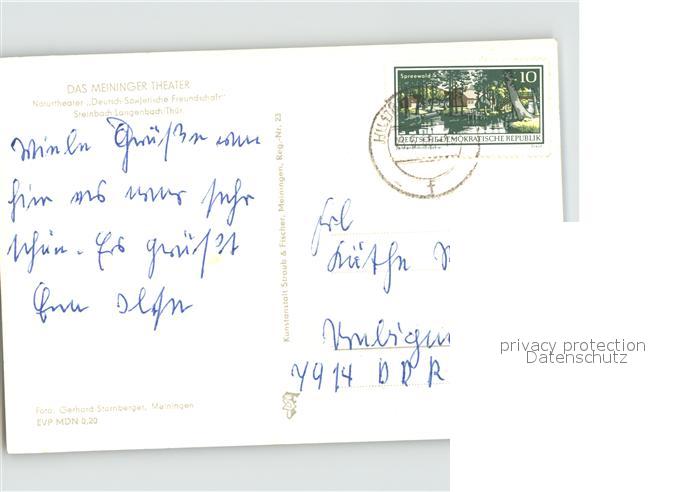 DAS MEININGER THEATER
Naturtheater „Deutsch-Sowjetische Freundschaft"
Steinbach-Langenbach/Thür.
Viele Grüße von
hier es war sehr
schön. Es grüßt
Spreewald
10
DEUTSCHE DEMOKRATISCHE REPUBLIK
Kunstanstalt Straub & Fischer, Meiningen, Reg.-Nr. 23
Frl
Käthe
7914 DDR
privacy protection
Datenschutz
Foto: Gerhard Stamberger, Meiningen
EVP MDN 0,20